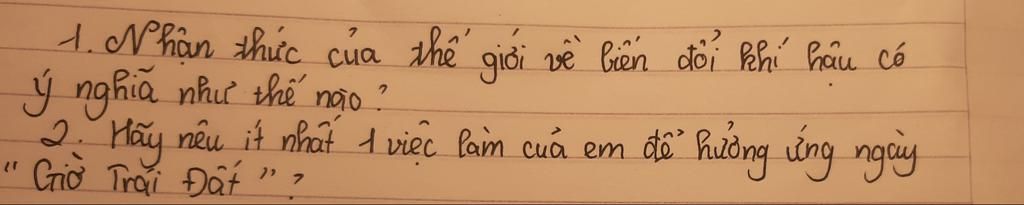 1. Nhận thức của thế giới về biến đổi khí hậu có
ý nghĩa như thế nào?
2. Hãy nêu ít nhất 1 việc làm của em để hưởng ứng ngày
"Giờ Trái Đất"?